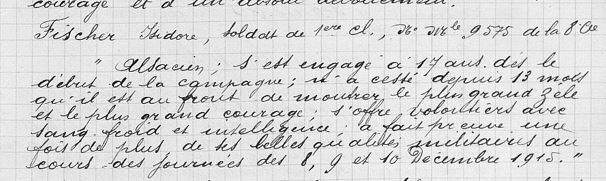 courage et d'un absolu dévouement.
Fischer Isidore, soldat de 1ere cl., No Mle 9575 de la 8e Cie
" Alsacien ; s'est engagé à 17 ans dès le
début de la campagne ; n'a cessé depuis 13 mois
qu'il est au front de montrer le plus grand zèle
et le plus grand courage ; s'offre volontiers avec
sang-froid et intelligence ; a fait preuve une
fois de plus, de ses belles qualités militaires au
cours des journées des 8, 9 et 10 Décembre 1915. "